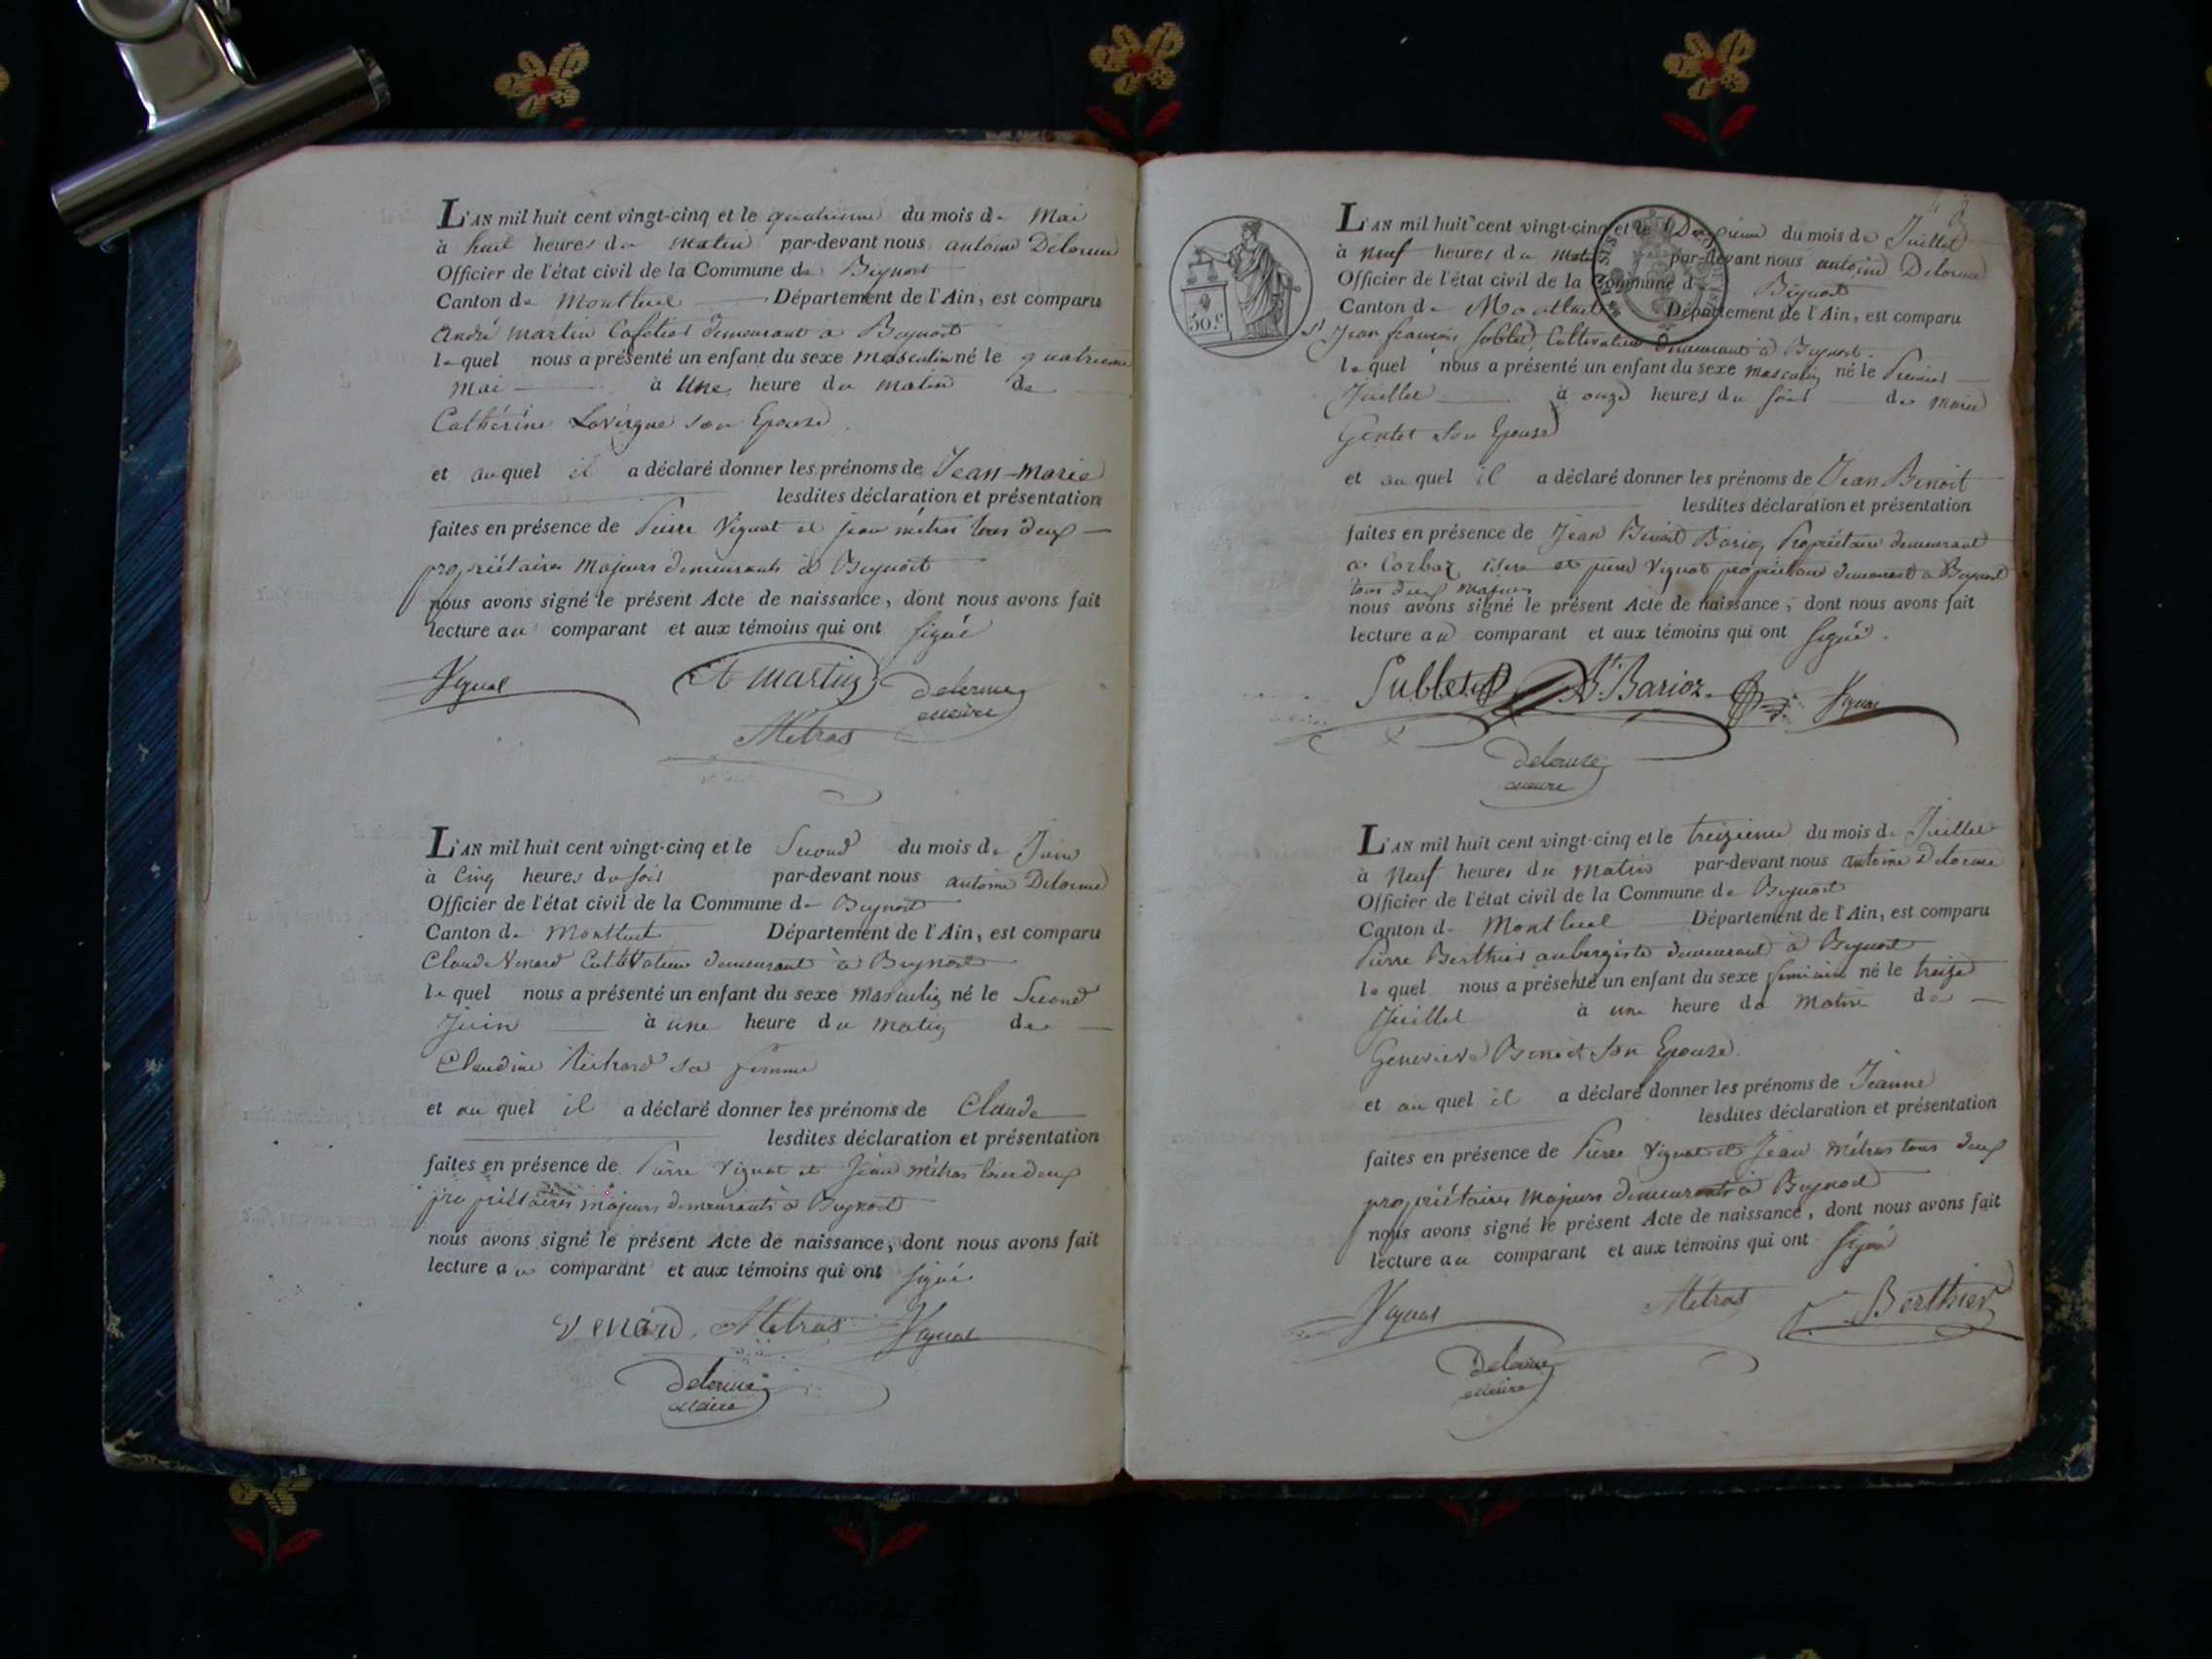 L'AN mil huit cent vingt-cinq et le quatrieme du mois de Mai
à huit heures du matin par-devant nous antoine Delorme
Officier de l'état civil de la Commune de Beynost
Canton de Montluel Département de l'Ain, est comparu
André martin Cafetier demeurant à Beynost
lequel nous a présenté un enfant du sexe masculin né le quatrieme
mai à Une heure du matin de
Cathérine Lavergne son Epouse
et auquel il a déclaré donner les prénoms de Jean-Marie
lesdites déclaration et présentation
faites en présence de Pierre Vignat et jean métras tous deux
propriétaires majeurs demeurants à Beynost
nous avons signé le présent Acte de naissance, dont nous avons fait
lecture au comparant et aux témoins qui ont signé
Vignat A martin Delorme
maire
Métras
L'AN mil huit cent vingt-cinq et le Second du mois de Juin
à Cinq heures du soir par-devant nous antoine Delorme
Officier de l'état civil de la Commune de Beynost
Canton de Montluel Département de l'Ain, est comparu
Claude Venard Cultivateur demeurant à Beynost
lequel nous a présenté un enfant du sexe masculin né le Second
Juin à une heure du matin de
Claudine Richard sa femme
et auquel il a déclaré donner les prénoms de Claude
lesdites déclaration et présentation
faites en présence de Pierre Vignat et Jean métras tous deux
propriétaires majeurs demeurants à Beynost
nous avons signé le présent Acte de naissance, dont nous avons fait
lecture au comparant et aux témoins qui ont signé
Venard Métras Vignat
Delorme
maire
50 c
L'AN mil huit cent vingt-cinq et le Deuxieme du mois de Juillet
à neuf heures du matin par-devant nous antoine Delorme
Officier de l'état civil de la Commune de Beynost
Canton de Montluel Département de l'Ain, est comparu
Sr Jean françois Sublet, Cultivateur demeurant à Beynost
lequel nous a présenté un enfant du sexe masculin né le Premier
Juillet à onze heures du soir de marie
Gentet son Epouse
et auquel il a déclaré donner les prénoms de Jean Benoit
lesdites déclaration et présentation
faites en présence de Jean Benoit Barioz Propriétaire demeurant
à Corbaz isère et pierre Vignat propriétaire demeurant à Beynost
tous deux majeurs
nous avons signé le présent Acte de naissance, dont nous avons fait
lecture au comparant et aux témoins qui ont signé.
Sublet Bt. Barioz Vignat
Delorme
maire
L'AN mil huit cent vingt-cinq et le treizieme du mois de Juillet
à neuf heures du matin par-devant nous antoine Delorme
Officier de l'état civil de la Commune de Beynost
Canton de Montluel Département de l'Ain, est comparu
Pierre Berthier aubergiste demeurant à Beynost
lequel nous a présenté un enfant du sexe feminin né le treize
Juillet à une heure du matin de
Genevieve Benoit son Epouse
et auquel il a déclaré donner les prénoms de Jeanne
lesdites déclaration et présentation
faites en présence de Pierre Vignat et Jean métras tous deux
propriétaires majeurs demeurants à Beynost
nous avons signé le présent Acte de naissance, dont nous avons fait
lecture au comparant et aux témoins qui ont signé
Vignat Métras P. Berthier
Delorme
maire